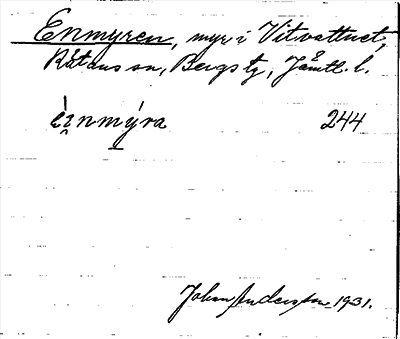 Enmyren, myr i Vitvattnet,
Råtans sn, Bergs tg, Jämtl. l.
èi̯nmýra 244
Johan Anderson 1931.